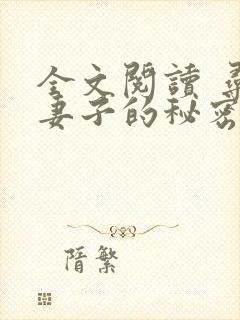 全文閱讀 尋
妻子的秘密
隋繁